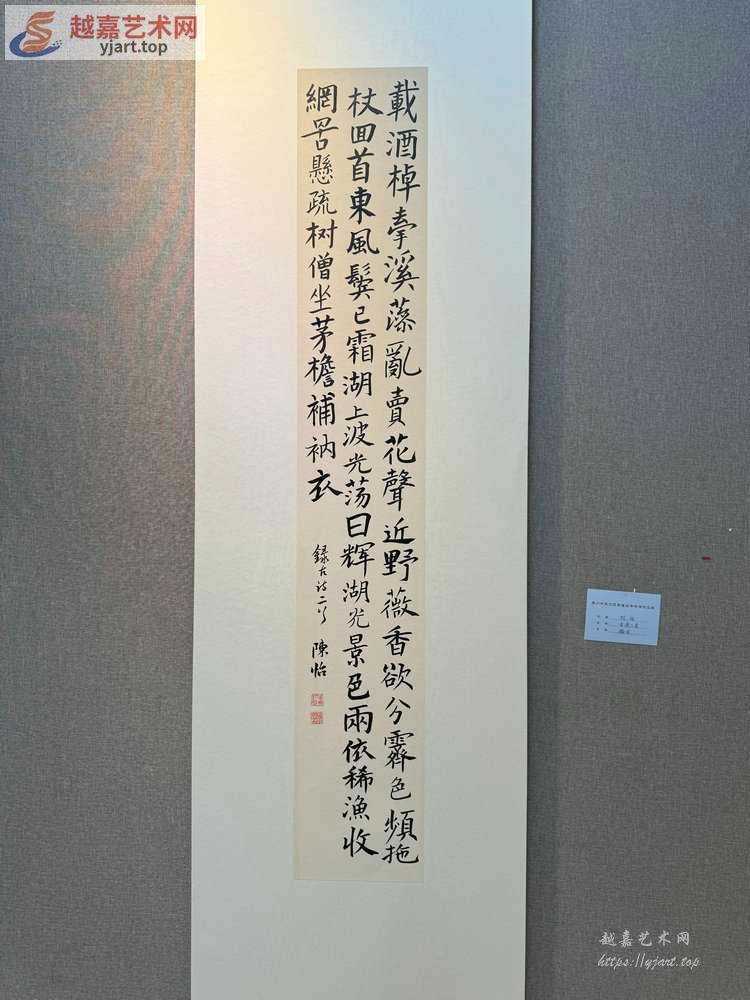 越嘉艺术网
yjart.top
載酒棹牽溪藻亂賣花聲近野薇香欲分霽色頻拖
杖回首東風鬢已霜湖上波光荡日辉湖光景色兩依稀漁收
網罟懸疏树僧坐茅檐補衲衣
録古诗二首 陳怡
越嘉艺术网
https://yjart.top